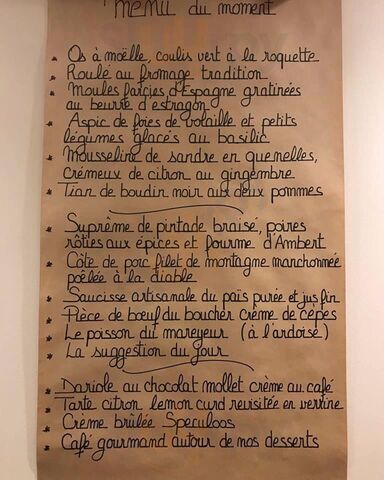 menu du moment
* Os à moëlle, coulis vert à la roquette
* Roulé au fromage tradition
* Moules farcies d'Espagne gratinées
au beurre d'estragon
* Aspic de foies de volaille et petits
légumes glacés au basilic
* Mousseline de sandre en quenelles,
crémeux de citron au gingembre
* Tian de boudin noir aux deux pommes
* Suprême de pintade braisé, poires
rôties aux épices et fourme d'Ambert
* Côte de porc filet de montagne manchonnée
poêlée à la diable
* Saucisse artisanale du païs purée et jus fin
* Pièce de bœuf du boucher crème de cèpes
* Le poisson du mareyeur (à l'ardoise)
* La suggestion du jour
* Dariole au chocolat mollet crème au café
* Tarte citron lemon curd revisitée en verrine
* Crème brûlée Speculoos
* Café gourmand autour de nos desserts